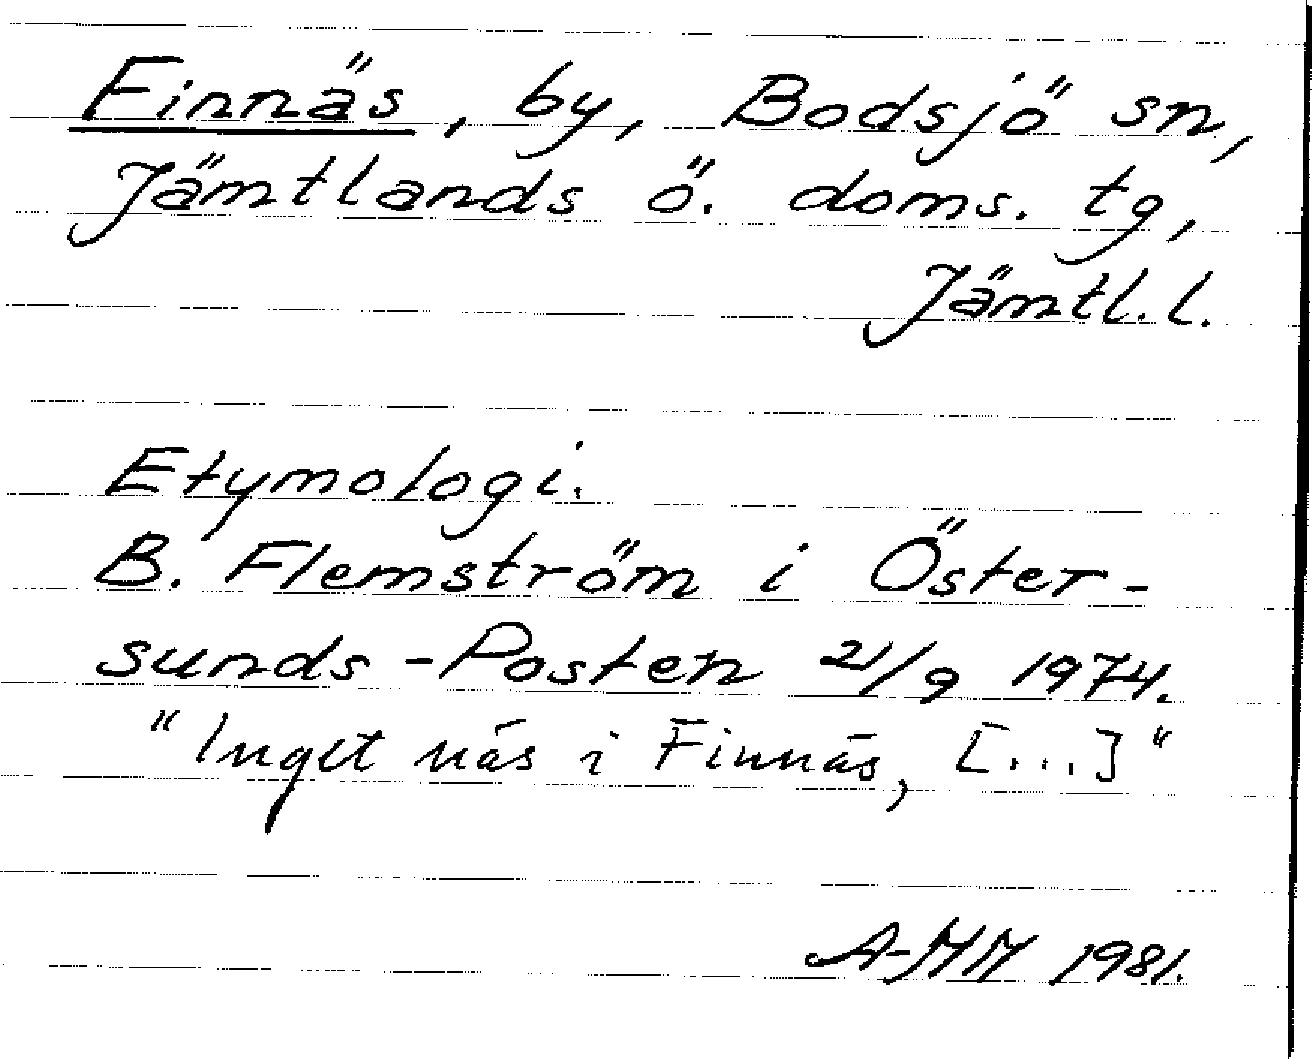 Finnäs, by, Bodsjö sn,
Jämtlands ö. doms. tg,
Jämtl. l.
Etymologi.
B. Flemström i Öster-
sunds-Posten 21/9 1974.
"Inget näs i Finnäs, [...]"
A-MM 1981.